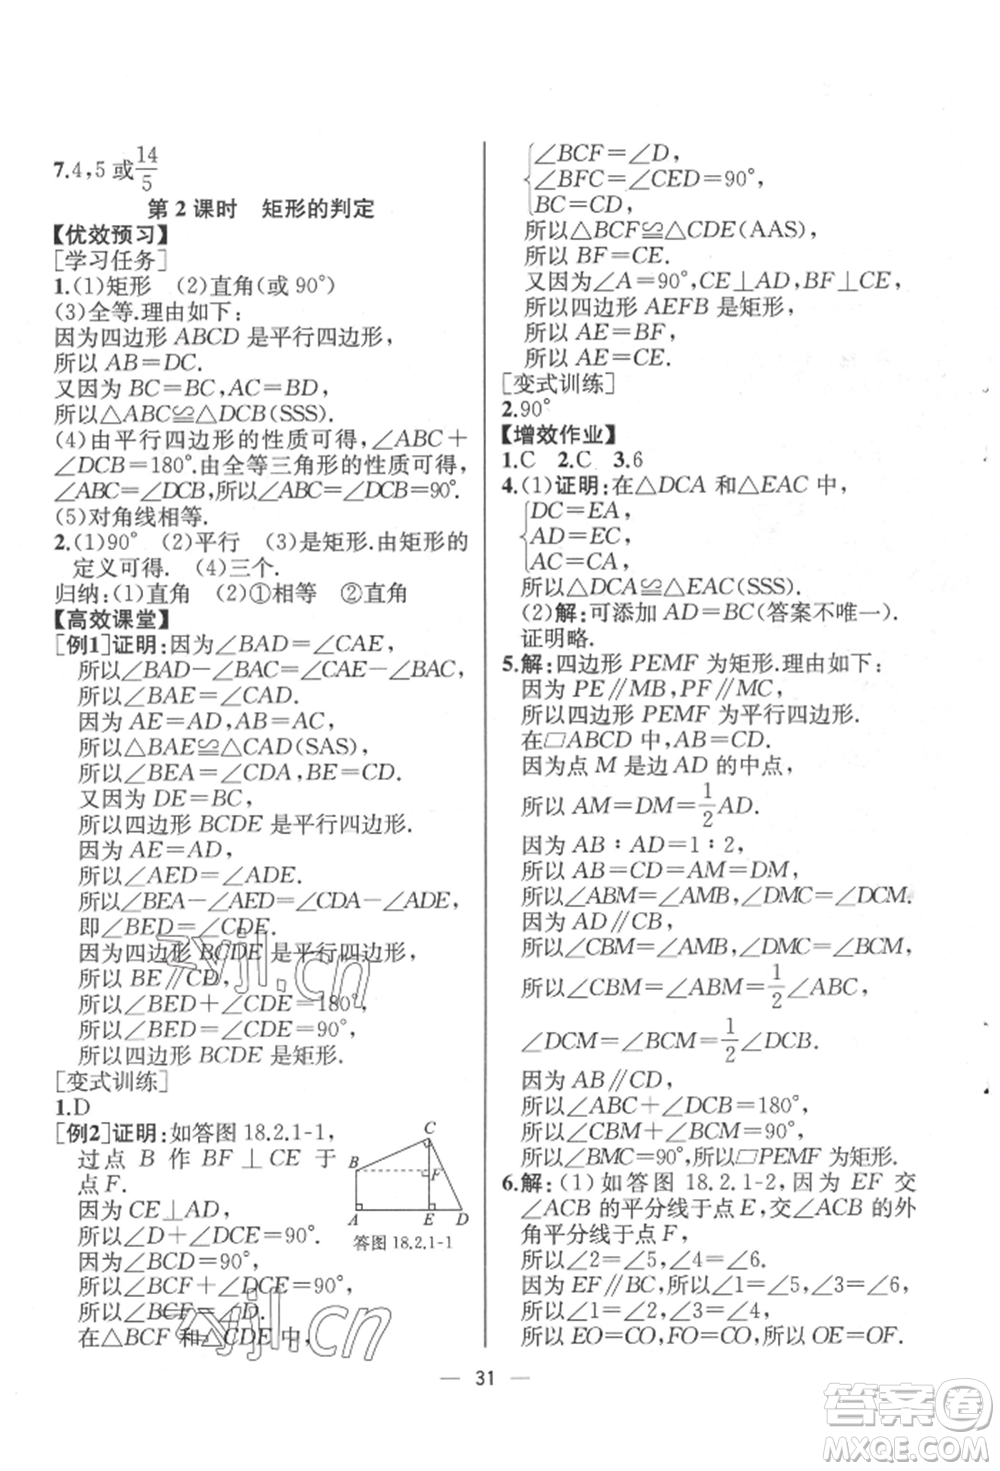 7.4,5 或14/5
第 2 课时　矩形的判定
【优效预习】
[学习任务]
1.(1)矩形　(2)直角(或 90°)
(3)全等.理由如下:
因为四边形 ABCD 是平行四边形,
所以 AB=DC.
又因为 BC=BC,AC=BD,
所以△ABC≌△DCB(SSS).
(4)由平行四边形的性质可得,∠ABC+
∠DCB=180°.由全等三角形的性质可得,
∠ABC=∠DCB,所以∠ABC=∠DCB=90°.
(5)对角线相等.
2.(1)90°　(2)平行　(3)是矩形.由矩形的
定义可得.　(4)三个.
归纳:(1)直角　(2)①相等　②直角
【高效课堂】
[例1]证明:因为∠BAD=∠CAE,
所以∠BAD-∠BAC=∠CAE-∠BAC,
所以∠BAE=∠CAD.
因为 AE=AD,AB=AC,
所以△BAE≌△CAD(SAS),
所以∠BEA=∠CDA,BE=CD.
又因为 DE=BC,
所以四边形 BCDE 是平行四边形.
因为 AE=AD,
所以∠AED=∠ADE.
所以∠BEA-∠AED=∠CDA-∠ADE,
即∠BED=∠CDE.
因为四边形 BCDE 是平行四边形,
所以 BE∥CD,
所以∠BED+∠CDE=180°,
所以∠BED=∠CDE=90°,
所以四边形 BCDE 是矩形.
[变式训练]
1.D
[例2]证明:如答图 18.2.1-1,
过点 B 作 BF⊥CE 于
点 F.
因为 CE⊥AD,
所以∠D+∠DCE=90°.
因为∠BCD=90°,
所以∠BCF+∠DCE=90°,
所以∠BCF=∠D.
在△BCF 和△CDE 中,
C
B
F
A
E
D
答图 18.2.1-1
∠BCF=∠D,
∠BFC=∠CED=90°,
BC=CD,
所以△BCF≌△CDE(AAS),
所以 BF=CE.
又因为∠A=90°,CE⊥AD,BF⊥CE,
所以四边形 AEFB 是矩形,
所以 AE=BF,
所以 AE=CE.
[变式训练]
2.90°
【增效作业】
1.C　2.C　3.6
4.(1)证明:在△DCA 和△EAC 中,
DC=EA,
AD=EC,
AC=CA,
所以△DCA≌△EAC(SSS).
(2)解:可添加 AD=BC(答案不唯一).
证明略.
5.解:四边形 PEMF 为矩形.理由如下:
因为 PE∥MB,PF∥MC,
所以四边形 PEMF 为平行四边形.
在▱ABCD 中,AB=CD.
因为点 M 是边 AD 的中点,
所以 AM=DM=1/2AD.
因为 AB∶AD=1∶2,
所以 AB=CD=AM=DM,
所以∠ABM=∠AMB,∠DMC=∠DCM.
因为 AD∥CB,
所以∠CBM=∠AMB,∠DMC=∠BCM,
所以∠CBM=∠ABM=1/2∠ABC,
∠DCM=∠BCM=1/2∠DCB.
因为 AB∥CD,
所以∠ABC+∠DCB=180°,
所以∠CBM+∠BCM=90°,
所以∠BMC=90°,所以▱PEMF 为矩形.
6.解:(1)如答图 18.2.1-2,因为 EF 交
∠ACB 的平分线于点 E,交∠ACB 的外
角平分线于点 F,
所以∠2=∠5,∠4=∠6.
因为 EF∥BC,所以∠1=∠5,∠3=∠6,
所以∠1=∠2,∠3=∠4,
所以 EO=CO,FO=CO,所以 OE=OF.
— 31 —
zyjl.cn
zyjl.cn
答案圈
MXQE.COM